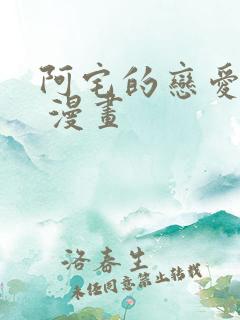 阿宅的戀愛
漫畫
洛春生
未經同意禁止轉載